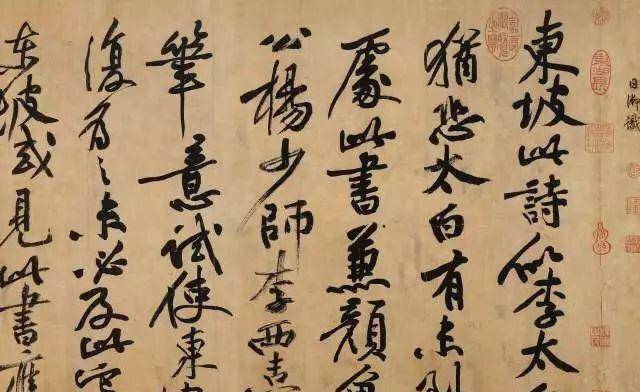 東坡此詩似李太
猶恐太白有未到
處此書兼顏魯
公楊少師李西臺
筆意試使東坡
復為之未必及此它
東坡或見此書應